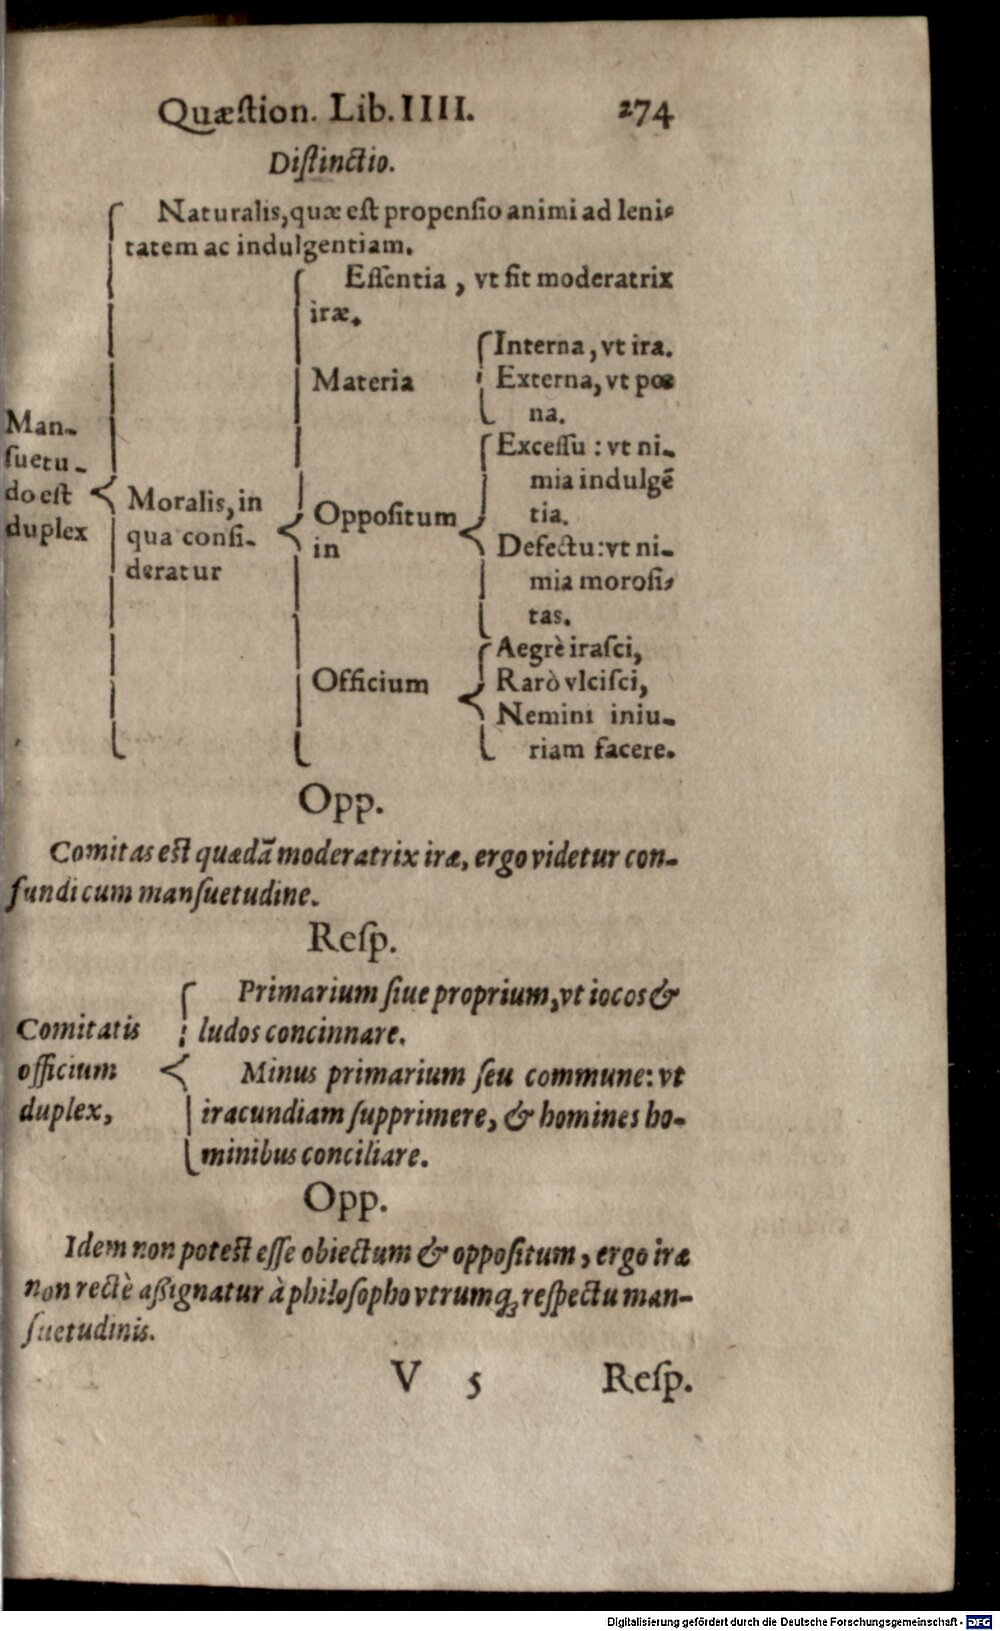 Quæſtion. Lib. IIII. 274
Diſtinctio.
Naturalis, quæ eſt propenſio animi ad leni-
tatem ac indulgentiam.
Eſſentia, vt ſit moderatrix
iræ.
Materia
Interna, vt ira.
Externa, vt pœ
na.
Man-
ſuetu-
do eſt
duplex
Moralis, in
qua conſi-
deratur
Oppoſitum
in
Exceſſu: vt ni-
mia indulgẽ
tia.
Defectu: vt ni-
mia moroſi-
tas.
Officium
Aegrè iraſci,
Rarò vlciſci,
Nemini iniu-
riam facere.
Opp.
Comitas eſt quædã moderatrix iræ, ergo videtur con-
fundi cum manſuetudine.
Reſp.
Comitatis
officium
duplex,
Primarium ſiue proprium, vt iocos &
ludos concinnare.
Minus primarium ſeu commune: vt
iracundiam ſupprimere, & homines ho-
minibus conciliare.
Opp.
Idem non poteſt eſſe obiectum & oppoſitum, ergo iræ
non rectè aſſignatur à philoſopho vtrumq; reſpectu man-
ſuetudinis.
V 5 Reſp.
Digitalisierung gefördert durch die Deutsche Forschungsgemeinschaft - DFG